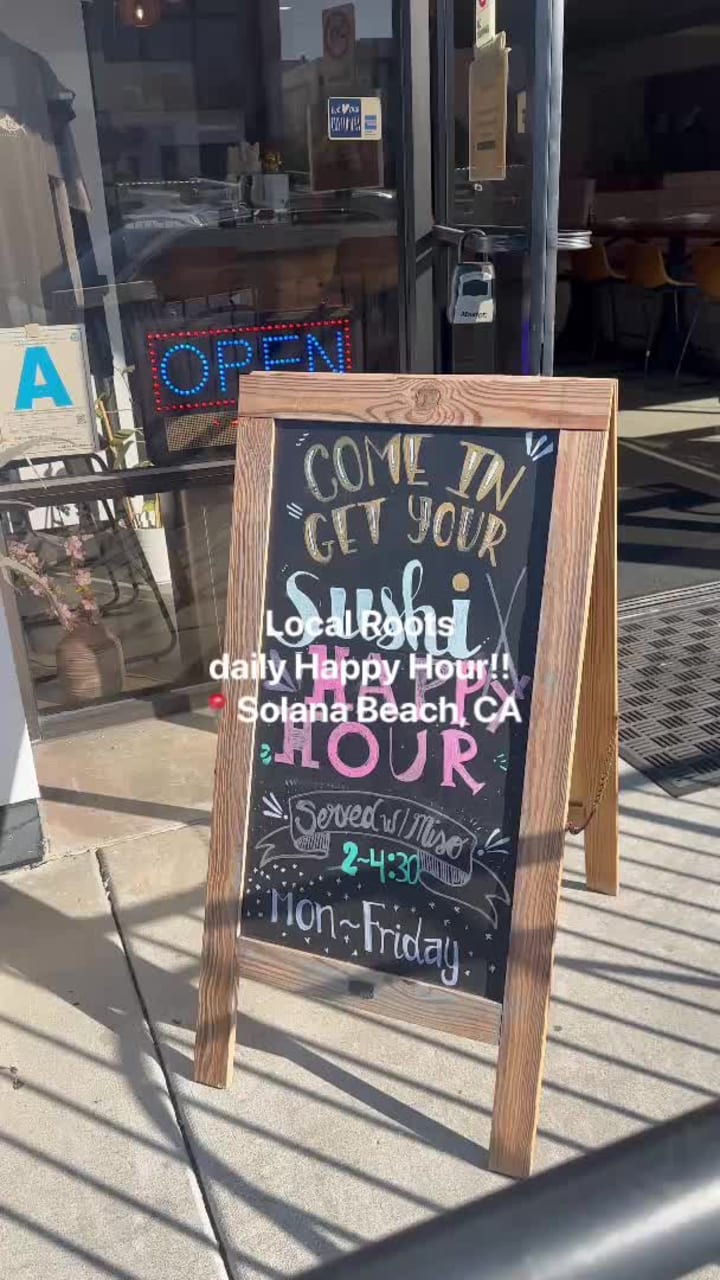 OPEN
A
COME IN
GET YOUR
Sushi
HAPPY
HOUR
Served w/ Miso
2~4:30
Mon~Friday
Local Roots
daily Happy Hour!!
📍 Solana Beach, CA
Master